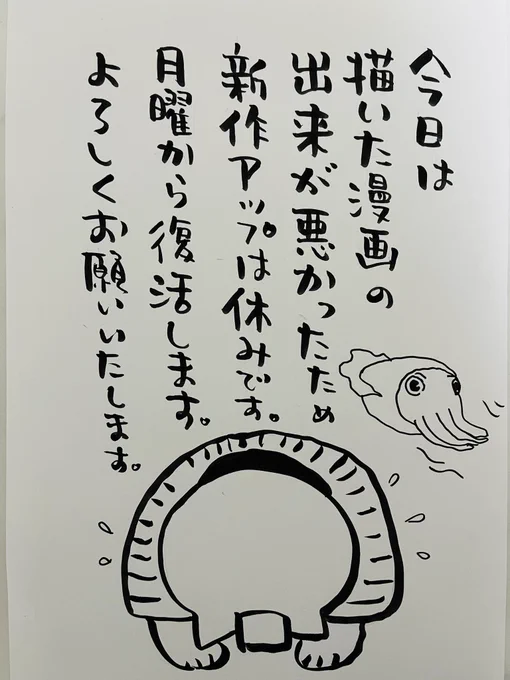 今日は
描いた漫画の
出来が悪かったため
新作アップは休みです。
月曜から復活します。
よろしくお願いいたします。